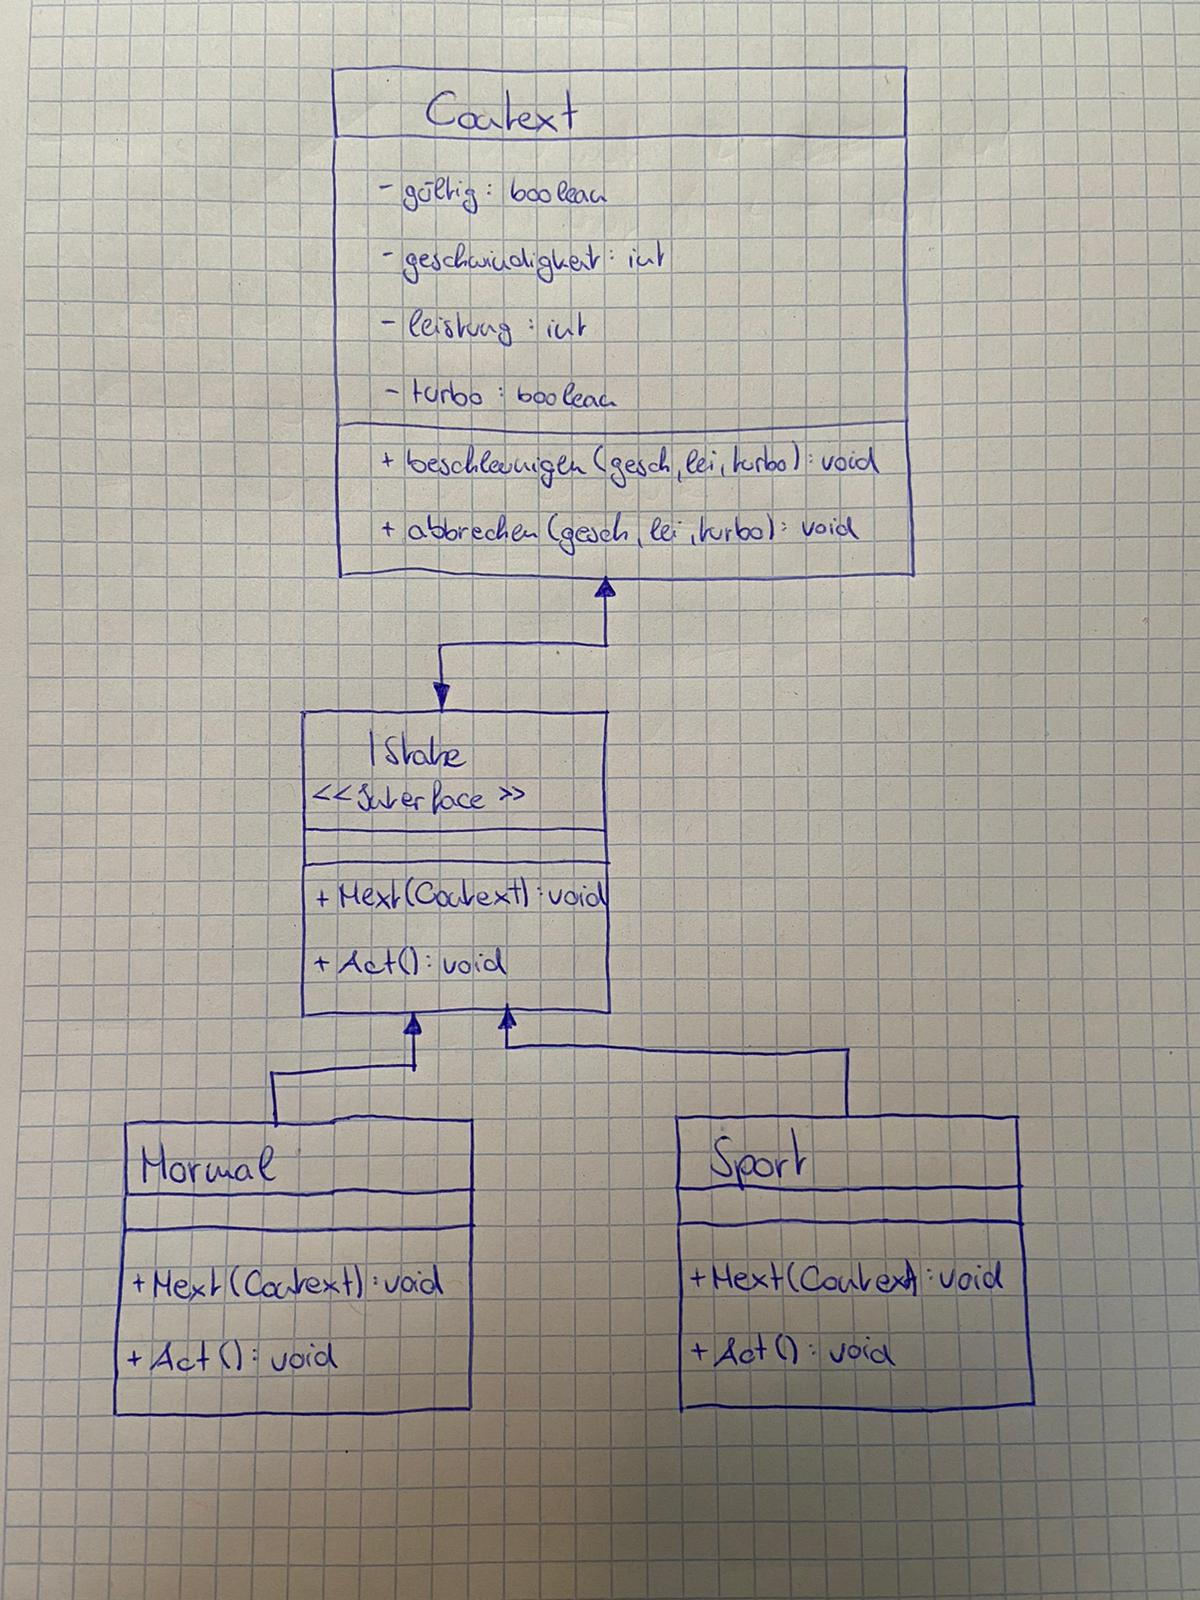 Context
- gültig : boolean
- geschwindigkeit : int
- leistung : int
- turbo : boolean
+ beschleunigen (gesch, lei, turbo) : void
+ abbrechen (gesch, lei, turbo) : void
IState
<<Interface>>
+ Next(Context) : void
+ Act() : void
Normal
+ Next (Context) : void
+ Act () : void
Sport
+ Next (Context) : void
+ Act () : void